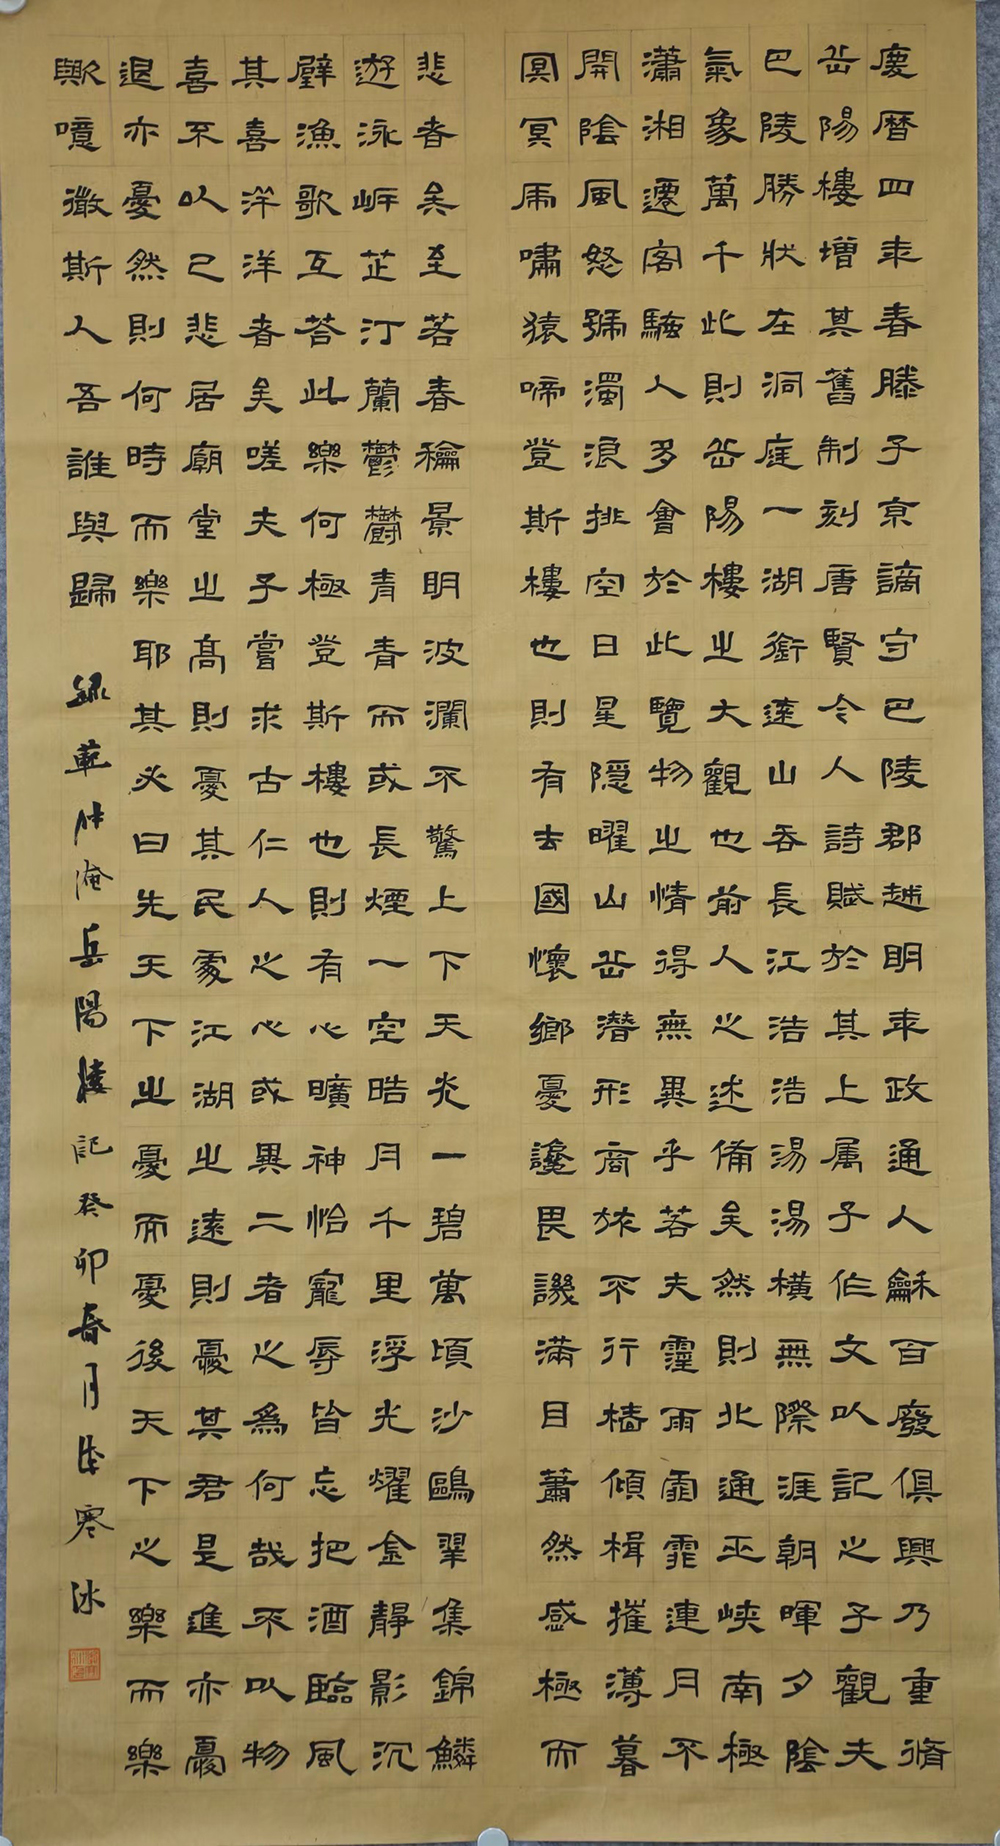 慶曆四秊春滕子京謫守巴陵郡越明秊政通人龢百廢俱興乃重脩
岳陽樓增其舊制刻唐賢今人詩賦於其上属子作文以記之子觀夫
巴陵勝狀在洞庭一湖銜遠山吞長江浩浩湯湯橫無際涯朝暉夕陰
氣象萬千此則岳陽樓之大觀也前人之述備矣然則北通巫峽南極
瀟湘遷客騷人多會於此覽物之情得無異乎若夫霪雨霏霏連月不
開陰風怒號濁浪排空日星隱曜山岳潛形商旅不行檣傾楫摧薄暮
冥冥虎嘯猿啼登斯樓也則有去國懷鄉憂讒畏譏滿目蕭然感極而
悲者矣至若春龢景明波瀾不驚上下天光一碧萬頃沙鷗翠集錦鱗
遊泳岸芷汀蘭鬱鬱青青而或長煙一空皓月千里浮光耀金靜影沉
璧漁歌互答此樂何極登斯樓也則有心曠神怡寵辱皆忘把酒臨風
其喜洋洋者矣嗟夫子嘗求古仁人之心或異二者之爲何哉不以物
喜不以己悲居廟堂之高則憂其民處江湖之遠則憂其君是進亦憂
退亦憂然則何時而樂耶其必曰先天下之憂而憂後天下之樂而樂
歟噫微斯人吾誰與歸
錄範仲淹岳陽樓記癸卯春月寒冰